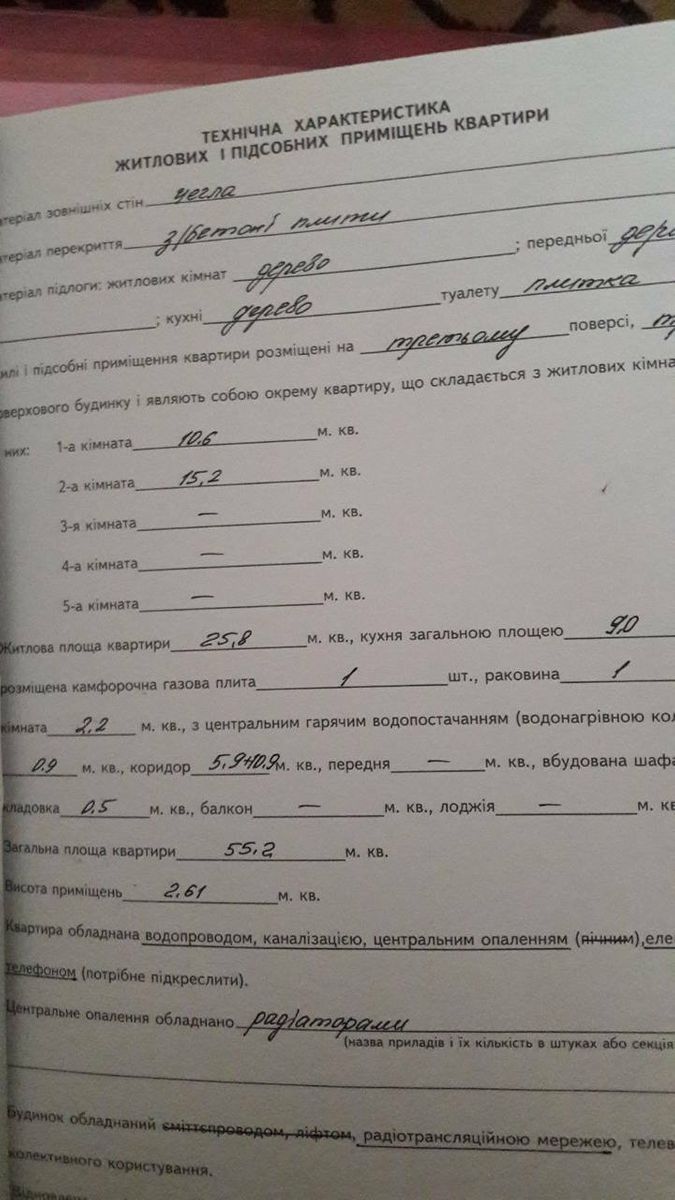 ТЕХНІЧНА ХАРАКТЕРИСТИКА
ЖИТЛОВИХ І ПІДСОБНИХ ПРИМІЩЕНЬ КВАРТИРИ
атеріал зовнішніх стін цегла
атеріал перекриття з/бетоні плити
атеріал підлоги: житлових кімнат дерево ; передньої дер
; кухні дерево туалету плитка
илі і підсобні приміщення квартири розміщені на третьому поверсі,
оверхового будинку і являють собою окрему квартиру, що складається з житлових кімна
них: 1-а кімната 10.6 м. кв.
2-а кімната 15,2 м. кв.
3-я кімната — м. кв.
4-а кімната — м. кв.
5-а кімната — м. кв.
Житлова площа квартири 25,8 м. кв., кухня загальною площею 9,0
розміщена камфорочна газова плита 1 шт., раковина 1
кімната 2,2 м. кв., з центральним гарячим водопостачанням (водонагрівною кол
0.9 м. кв., коридор 5,9+10.9 м. кв., передня — м. кв., вбудована шафа
кладовка 0.5 м. кв., балкон — м. кв., лоджія — м. кв
Загальна площа квартири 55,2 м. кв.
Висота приміщень 2,61 м. кв.
Квартира обладнана водопроводом, каналізацією, центральним опаленням (пічним),еле
телефоном (потрібне підкреслити).
Центральне опалення обладнано радіаторами
(назва приладів і їх кількість в штуках або секція
Будинок обладнаний сміттєпроводом, ліфтом, радіотрансляційною мережею, телев
колективного користування.